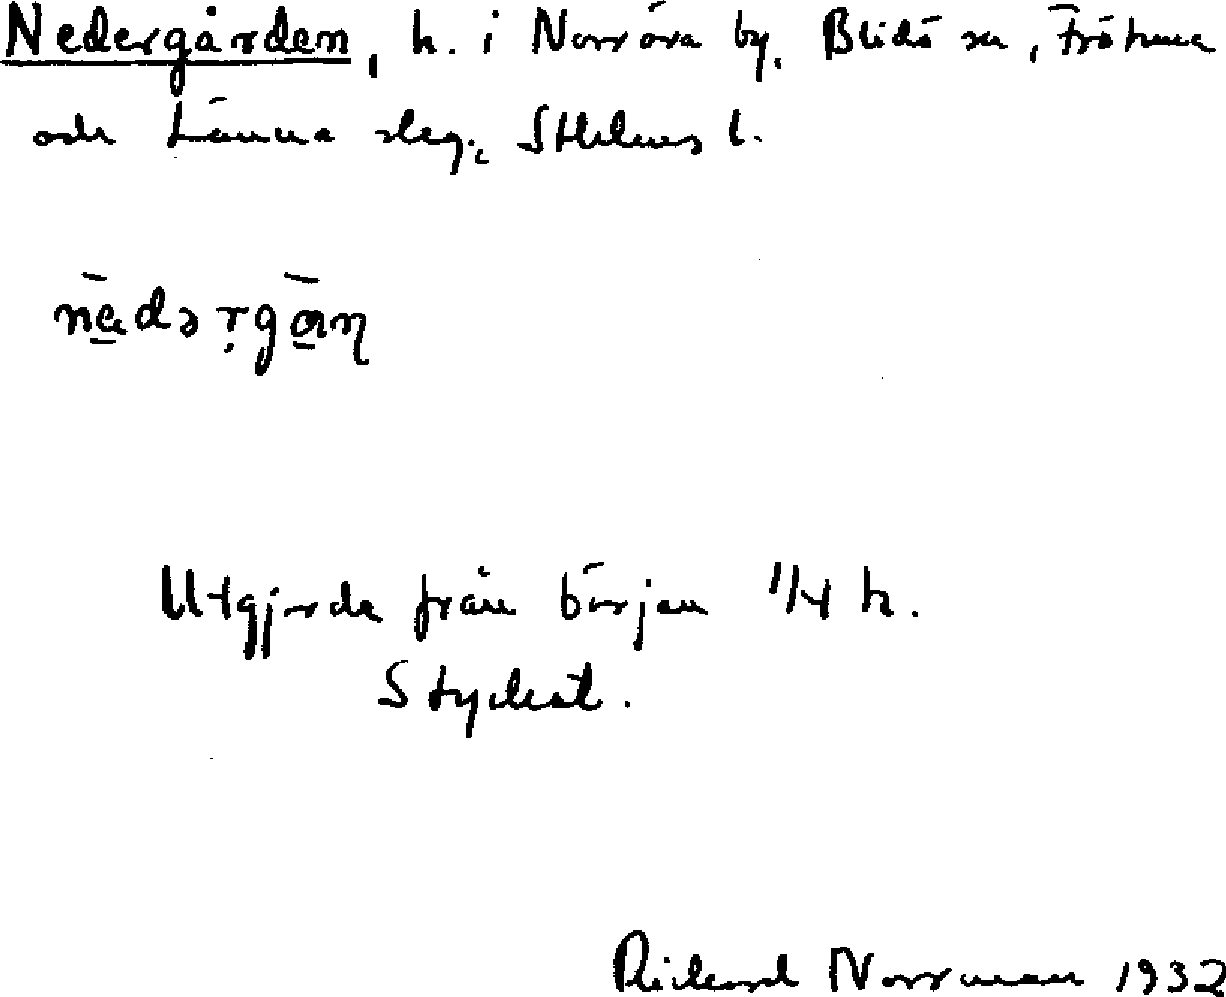 Nedergården, h. i Norröra by, Blidö sn, Frötuna
och Länna slg, Sthlms l.
nēdərgān
Utgjorde från början 1/4 h.
Styckat.
Rickard Norrman 1932